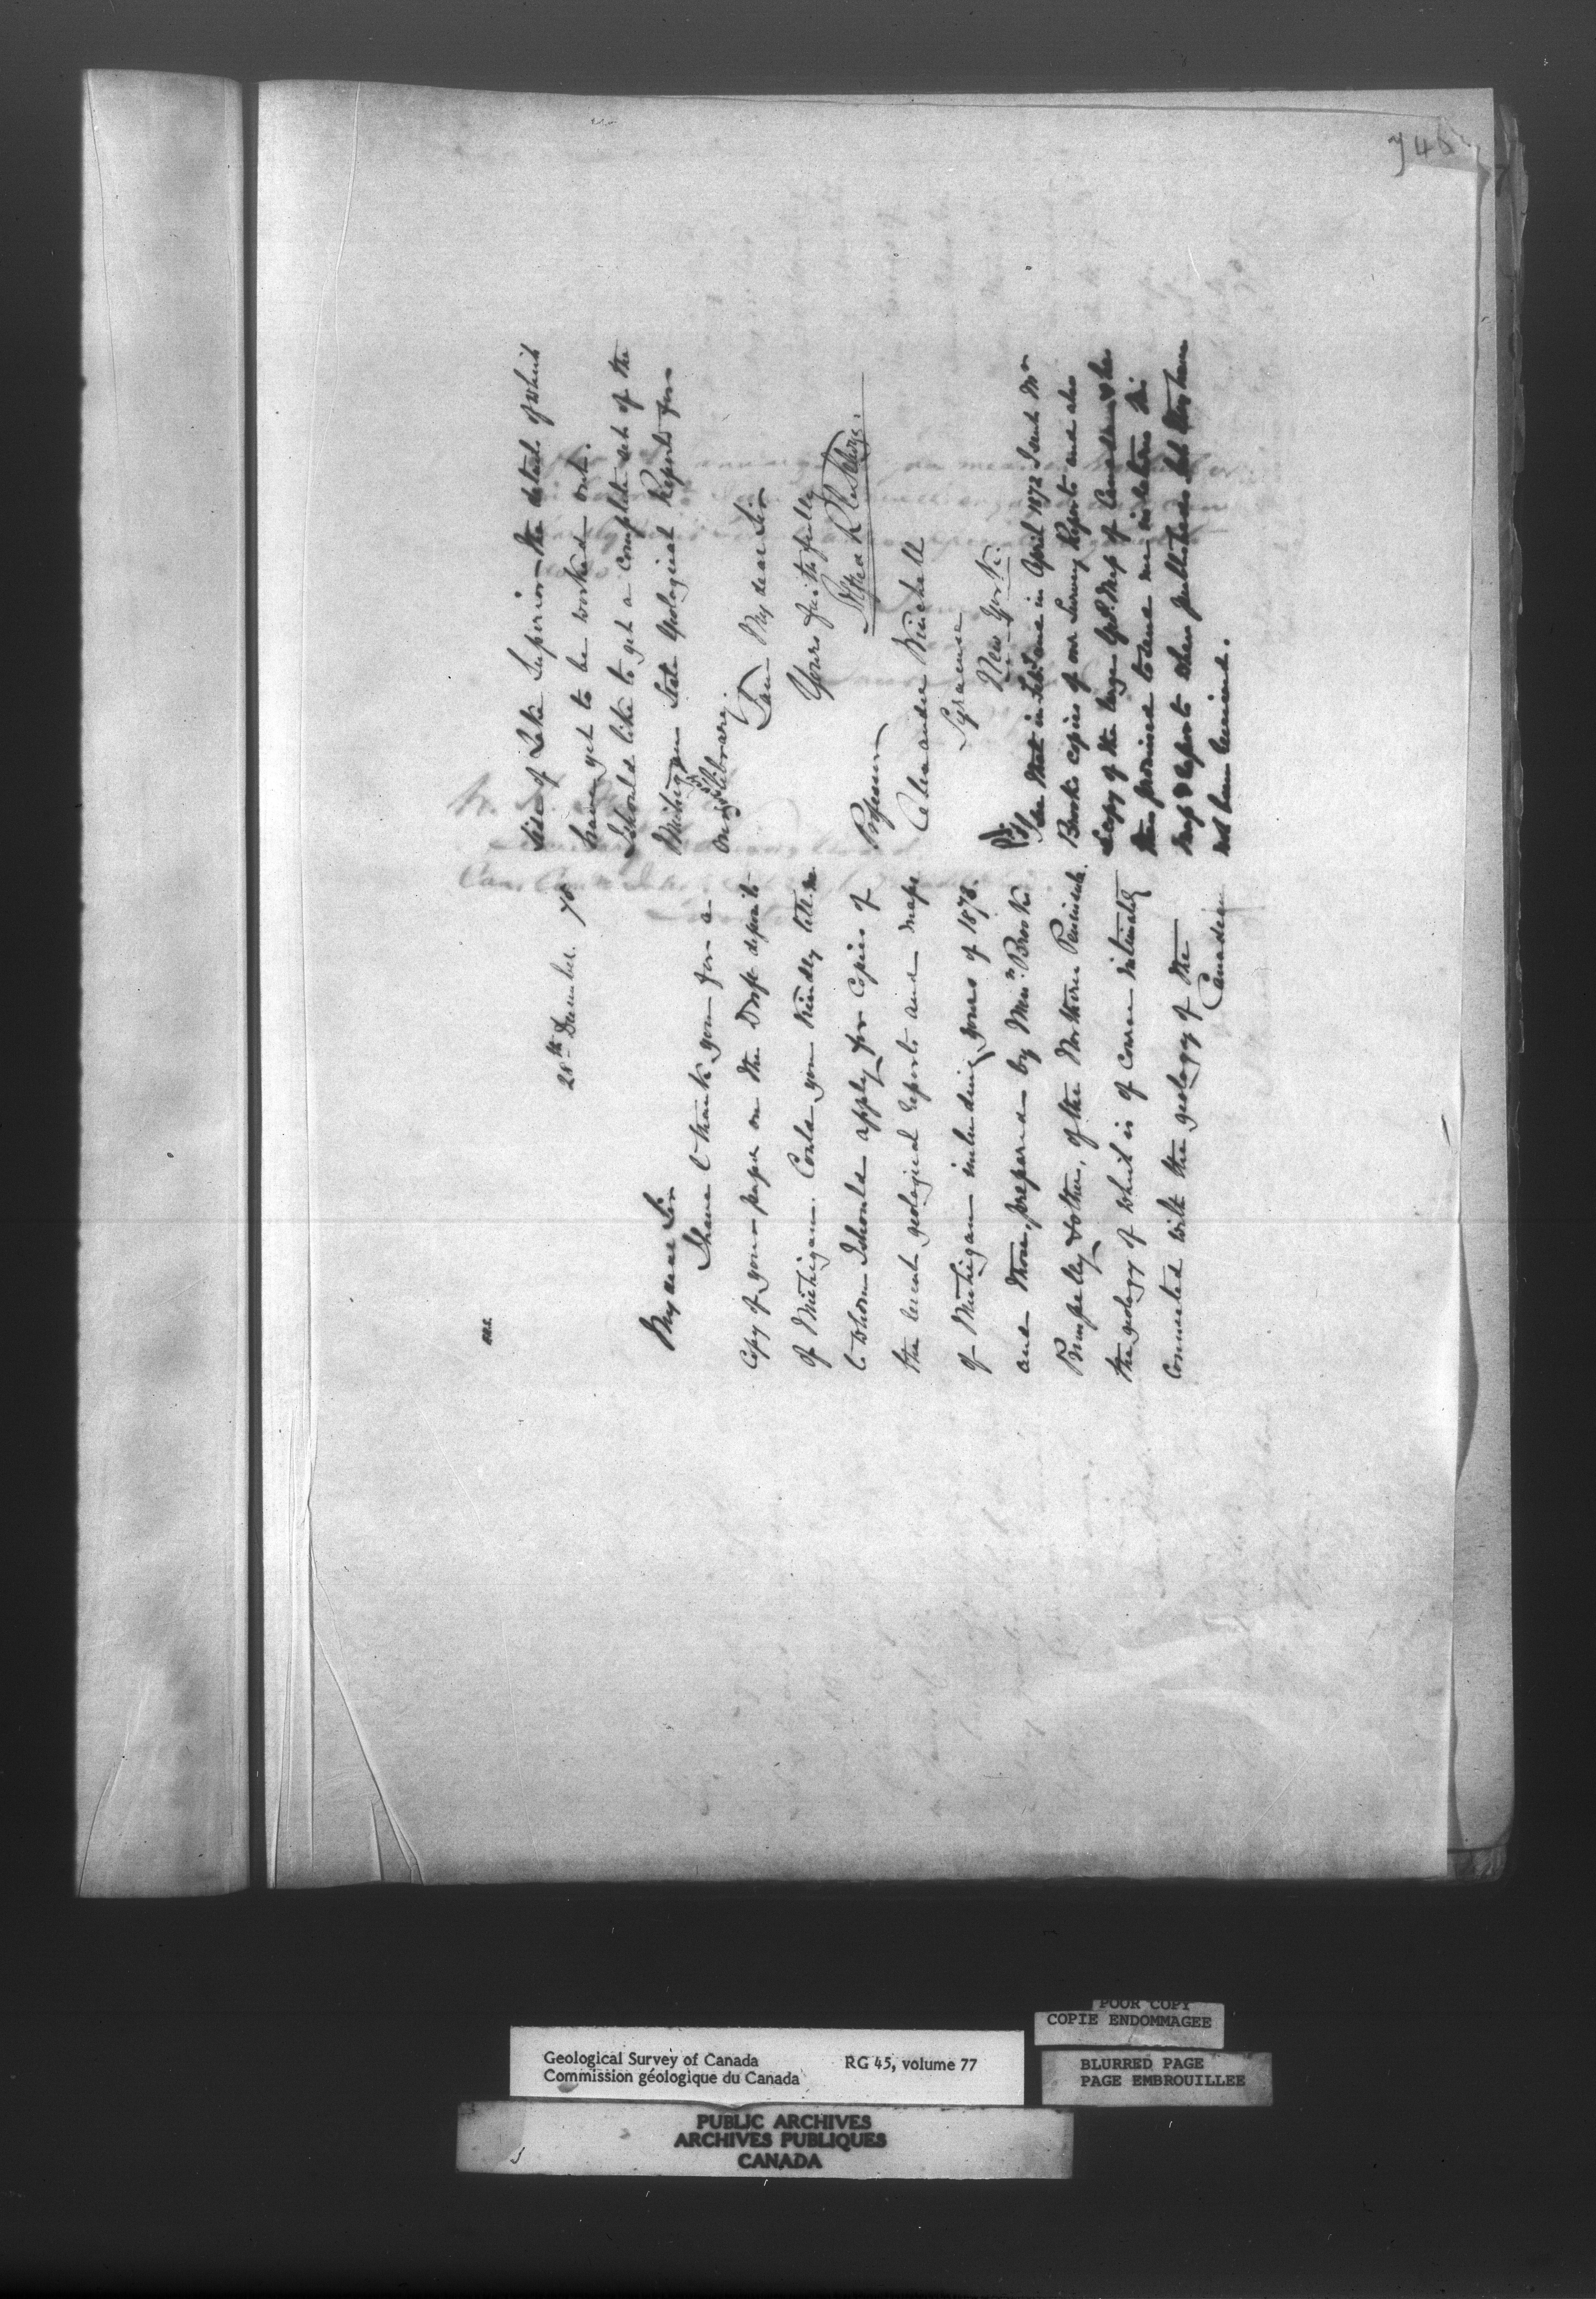 748
28th December 75
My dear Sir
I have to thank you for a
copy of your paper on the Drift deposits
of Michigan. Could you kindly tell me
to whom I should apply for copies of
the recent geological reports and maps
of Michigan including yours of 1873.
and those, prepared by Mess. Brooks
Pumpelly & others, of the Northern Peninsula.
the geology of which is of course intimately
connected with the geology of the
Canadian
side of Lake Superior the details of which
have yet to be worked out.
I should like to get a complete set of the
Michigan State Geological Reports for
our library.
I am My dear Sir
Yours faithfully
Alfred R C Selwyn.
Professor
Alexander Winchell
Syracuse
New York.
P.S.
I see that in Feby and in April 1872 I sent Mr
Brooks copies of our Survey Reports and also
a copy of the large Geol. Map of Canada & he
then promised to send me in return his
Map & Reports when published but they have
not been received.
POOR COPY
COPIE ENDOMMAGEE
Geological Survey of Canada RG 45, volume 77
Commission géologique du Canada
BLURRED PAGE
PAGE EMBROUILLEE
PUBLIC ARCHIVES
ARCHIVES PUBLIQUES
CANADA